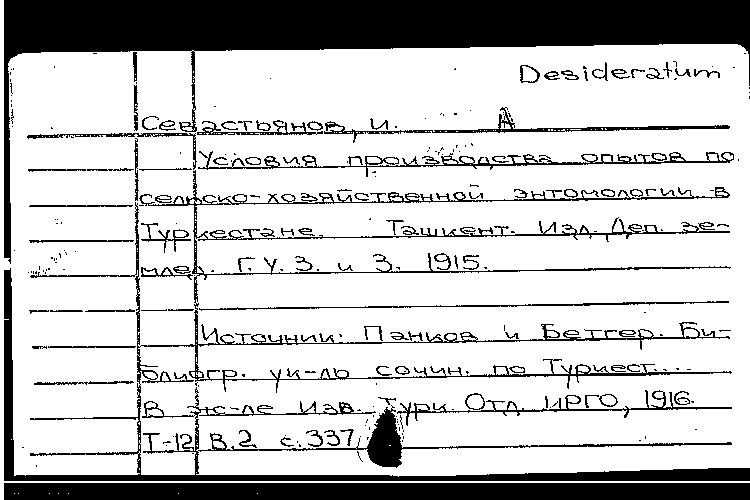 Desideratum
Севастьянов, И. А
Условия производства опытов по
сельско-хозяйственной энтомологии в
Туркестане. Ташкент. Изд. Деп. зе-
млед. Г.У.З. и З. 1915.
Источник: Панков и Бетгер. Би-
блиогр. ук-ль сочин. по Туркест...
В эк-ле Изв. Турк. Отд. ИРГО, 1916.
Т-12 В.2 с.337